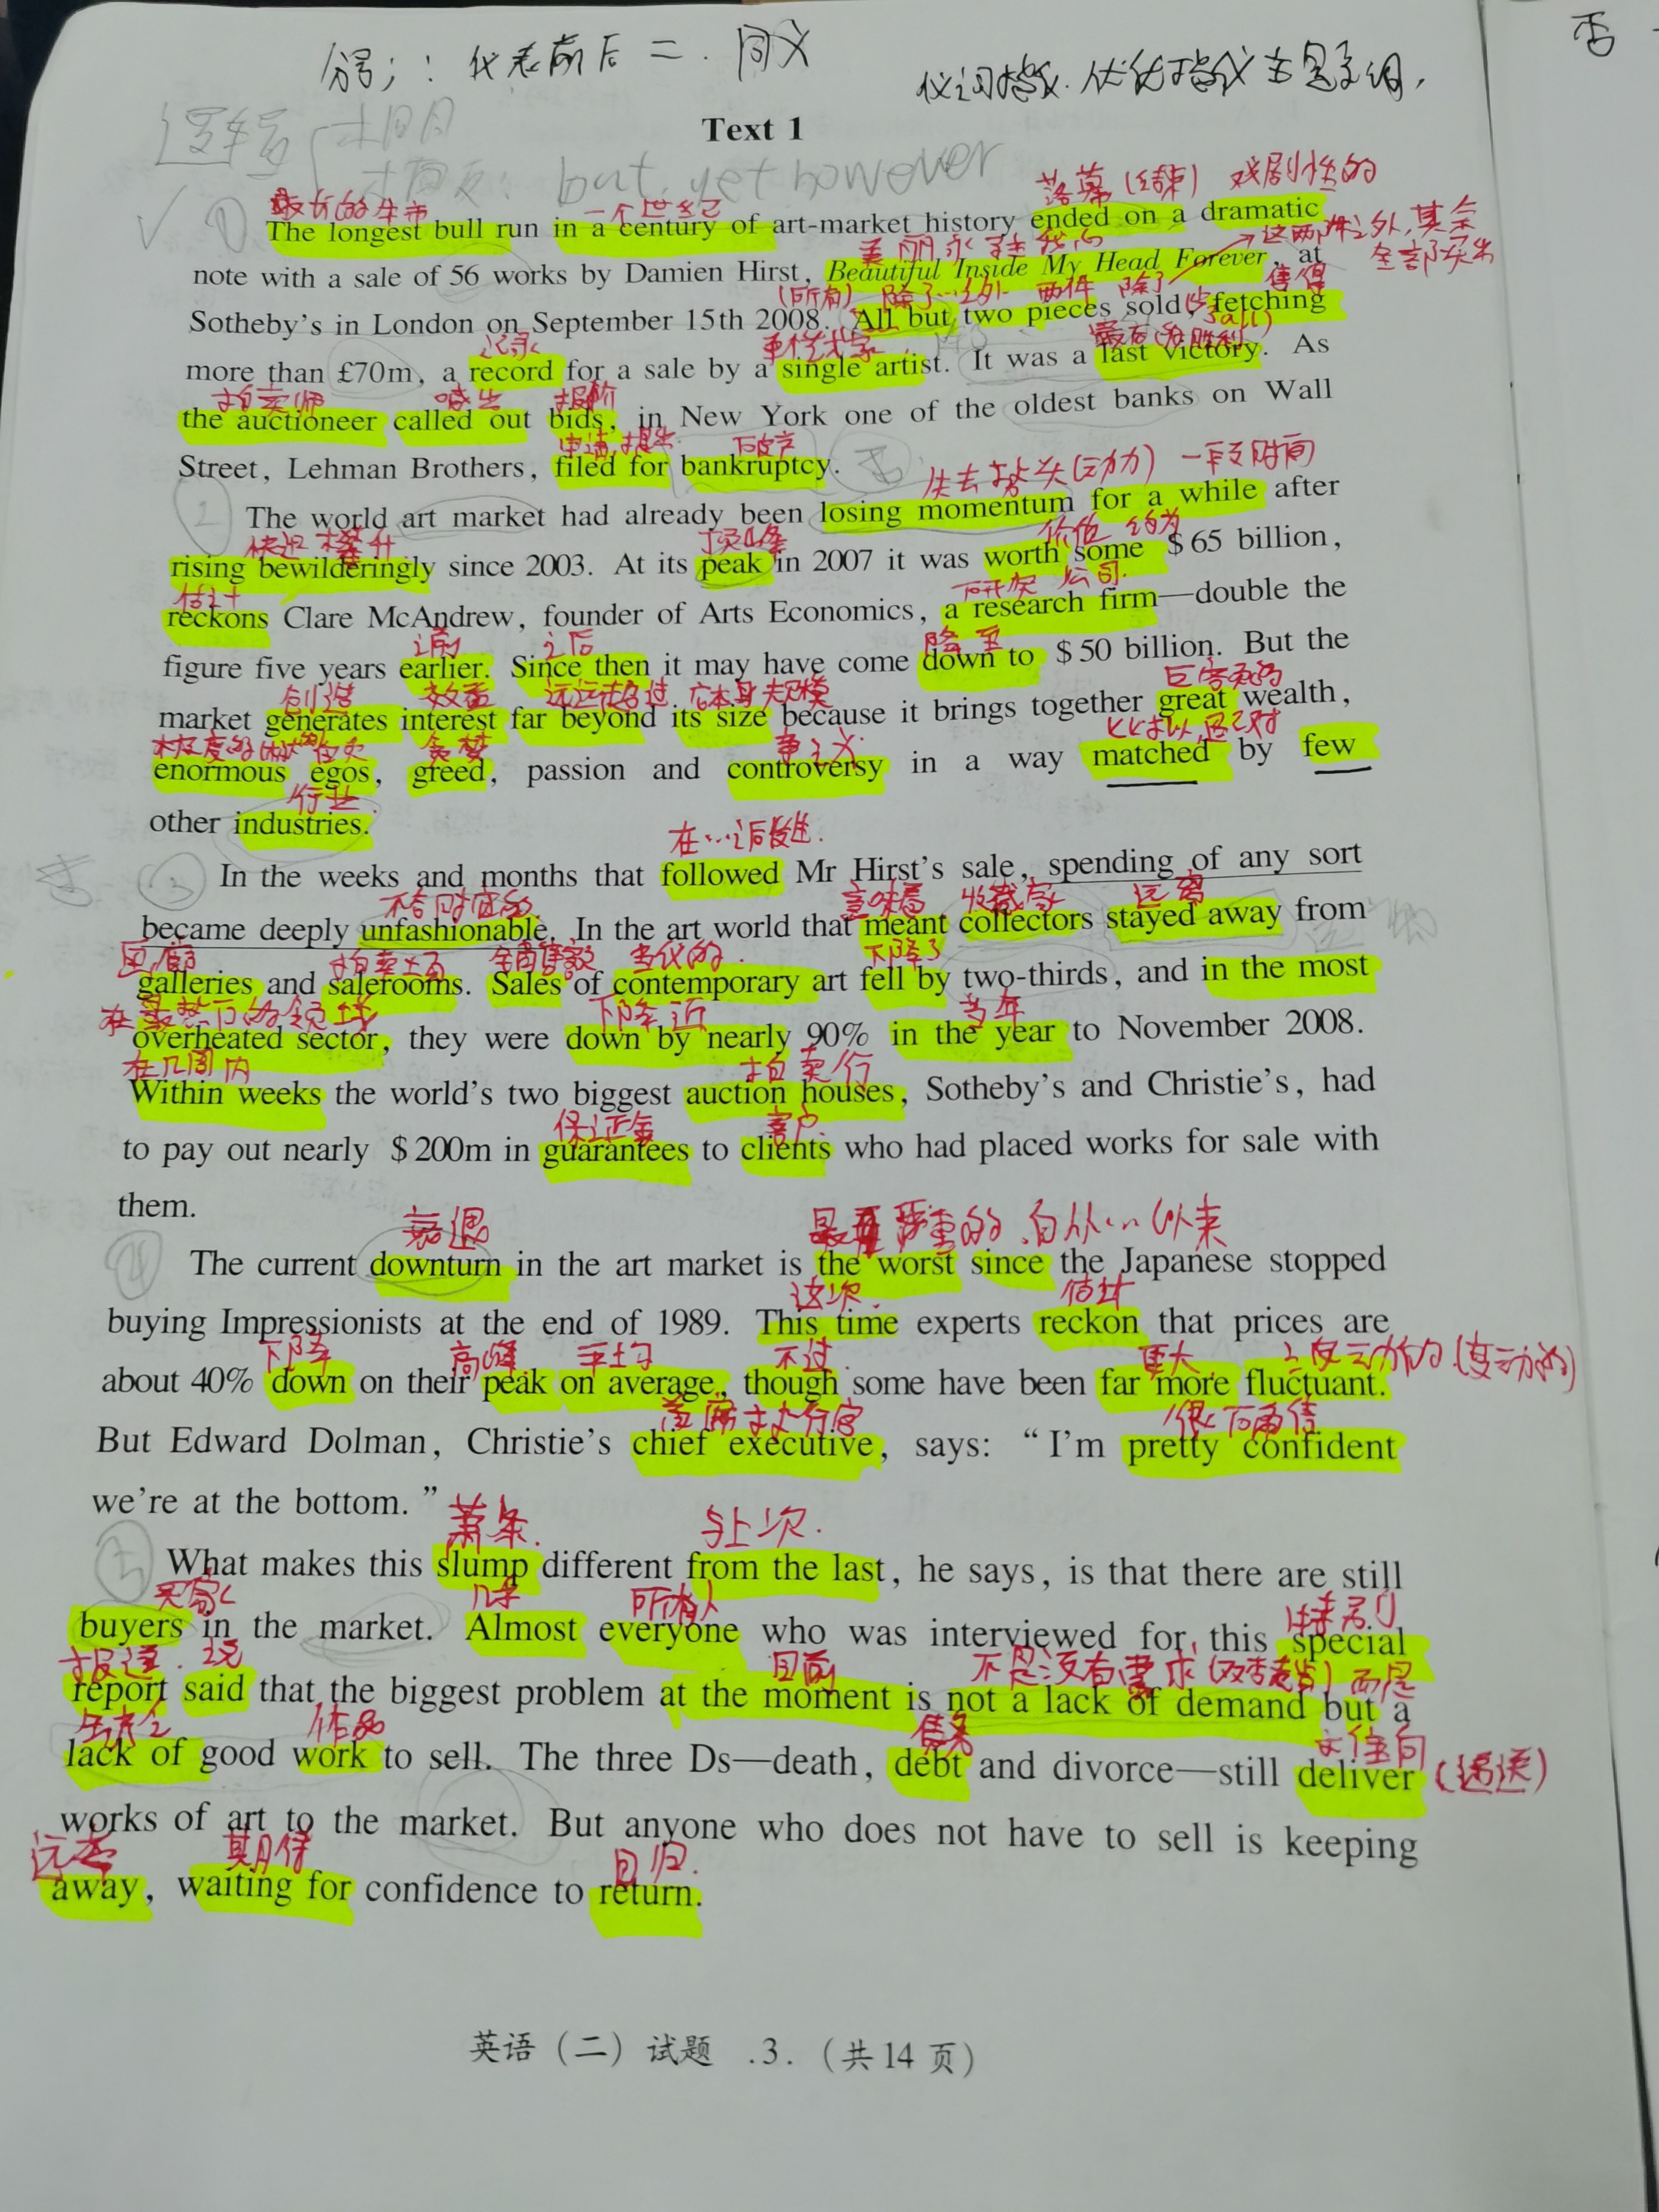 分号；：代表前后二.同义
否
Text 1
but, yet however
最长的牛市 一个世纪 落幕（结束） 戏剧性的
The longest bull run in a century of art-market history ended on a dramatic
这两件之外，其余
全部卖出
note with a sale of 56 works by Damien Hirst, Beautiful Inside My Head Forever, at
（所有） 除了…之外 两件 除了 售得
Sotheby's in London on September 15th 2008. All but two pieces sold, fetching
记录 单个艺术家 最后的胜利
more than £70m, a record for a sale by a single artist. It was a last victory. As
拍卖师 喊出 报价
the auctioneer called out bids, in New York one of the oldest banks on Wall
申请,提出 破产
Street, Lehman Brothers, filed for bankruptcy.
失去势头(动力) 一段时间
2 The world art market had already been losing momentum for a while after
顶峰 价值 约为
rising bewilderingly since 2003. At its peak in 2007 it was worth some $65 billion,
估计 研究 公司.
reckons Clare McAndrew, founder of Arts Economics, a research firm—double the
之前 之后 降至
figure five years earlier. Since then it may have come down to $50 billion. But the
创造 效益 远远超过 它本身规模
market generates interest far beyond its size because it brings together great wealth,
贪婪 争议
enormous egos, greed, passion and controversy in a way matched by few
行业
other industries.
在…之后发生.
3 In the weeks and months that followed Mr Hirst's sale, spending of any sort
不合时宜的 意味着 收藏家 远离
became deeply unfashionable. In the art world that meant collectors stayed away from
画廊 拍卖大厅 销售额 当代的. 下降了
galleries and salerooms. Sales of contemporary art fell by two-thirds, and in the most
下降近 当年
overheated sector, they were down by nearly 90% in the year to November 2008.
在几周内 拍卖行
Within weeks the world's two biggest auction houses, Sotheby's and Christie's, had
保证金 客户
to pay out nearly $200m in guarantees to clients who had placed works for sale with
them.
衰退 最严重的 自从…以来
4 The current downturn in the art market is the worst since the Japanese stopped
这次. 估计
buying Impressionists at the end of 1989. This time experts reckon that prices are
下降 高峰 平均 不过 更大 (变动的)
about 40% down on their peak on average, though some have been far more fluctuant.
首席执行官 很 确信
But Edward Dolman, Christie's chief executive, says: “I'm pretty confident
we're at the bottom.”
萧条. 与上次.
What makes this slump different from the last, he says, is that there are still
买家 几乎 所有人 特别
buyers in the market. Almost everyone who was interviewed for this special
报道. 说 目前 不是没有要求 而是
report said that the biggest problem at the moment is not a lack of demand but a
作品 债务
lack of good work to sell. The three Ds—death, debt and divorce—still deliver (递送)
works of art to the market. But anyone who does not have to sell is keeping
远离 期待 回归.
away, waiting for confidence to return.
英语（二）试题 .3.（共14页）